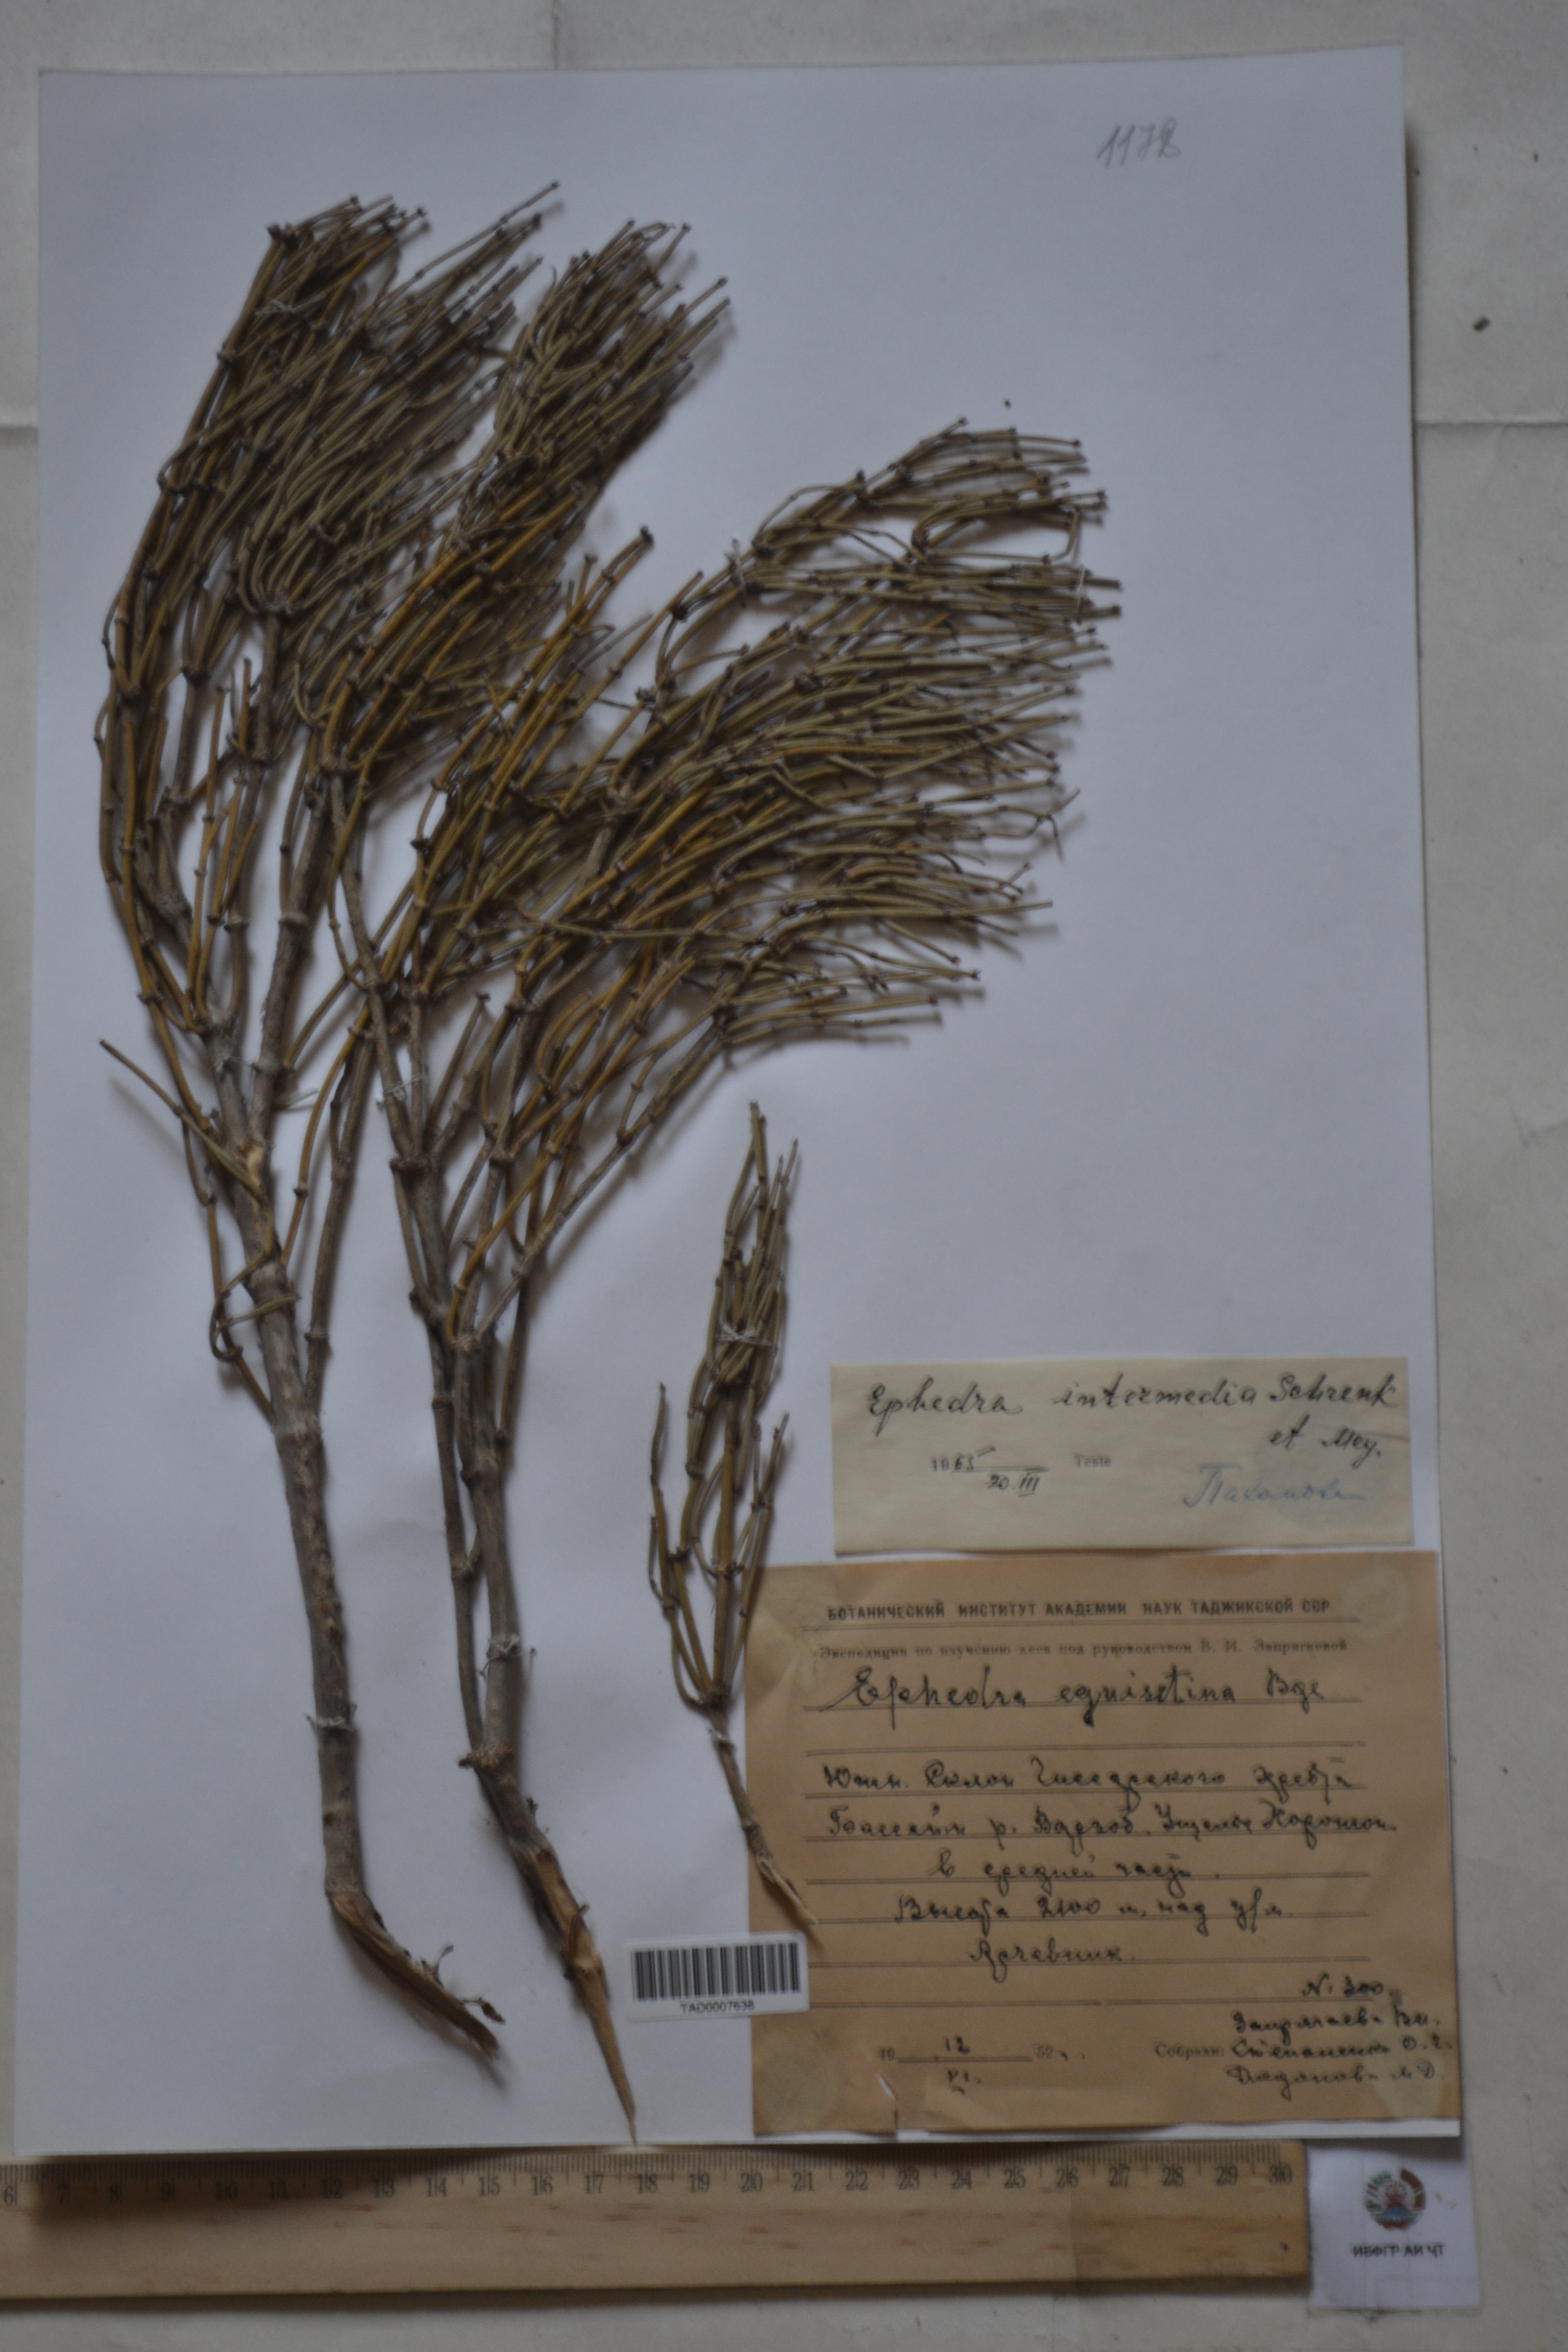 1178
Ephedra intermedia Schrenk
et Mey.
1965 Teste
20.III
Пахомова
БОТАНИЧЕСКИЙ ИНСТИТУТ АКАДЕМИИ НАУК ТАДЖИКСКОЙ ССР
Экспедиция по изучению леса под руководством В. И. Запрягаевой
Ephedra equisetina Bge
Южн. Склон Гиссарского хребта
Бассейн р. Варзоб. Ущелье
в средней части.
Высота 2100 м. над у/м.
Арчевник.
№ 300
Запрягаева В.И.
19 12 52 г. Собрали: Степаненко О. Г.
VI.
TAD0007638
6 7 8 9 10 11 12 13 14 15 16 17 18 19 20 21 22 23 24 25 26 27 28 29 30
ИБФГР АИ ҶТ